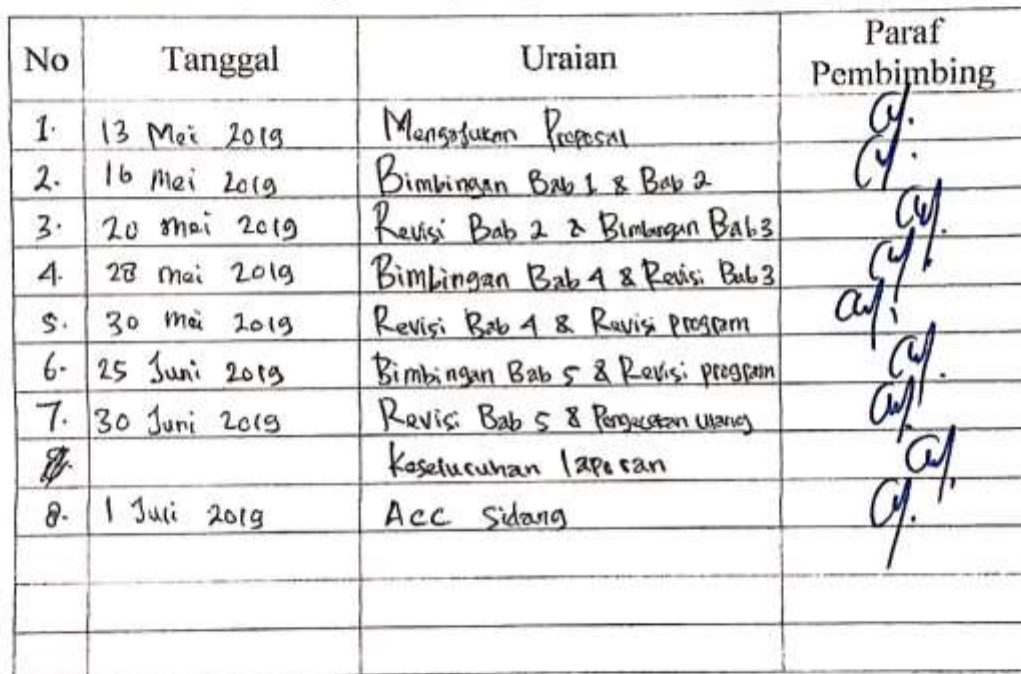 No Tanggal Uraian Paraf Pembimbing
1. 13 Mei 2019 Mengajukan Proposal
2. 16 Mei 2019 Bimbingan Bab 1 & Bab 2
3. 20 Mei 2019 Revisi Bab 2 & Bimbingan Bab 3
4. 28 Mei 2019 Bimbingan Bab 4 & Revisi Bab 3
5. 30 Mei 2019 Revisi Bab 4 & Revisi program
6. 25 Juni 2019 Bimbingan Bab 5 & Revisi program
7. 30 Juni 2019 Revisi Bab 5 & Pengecetan Ulang
Keseluruhan laporan
8. 1 Juli 2019 Acc Sidang